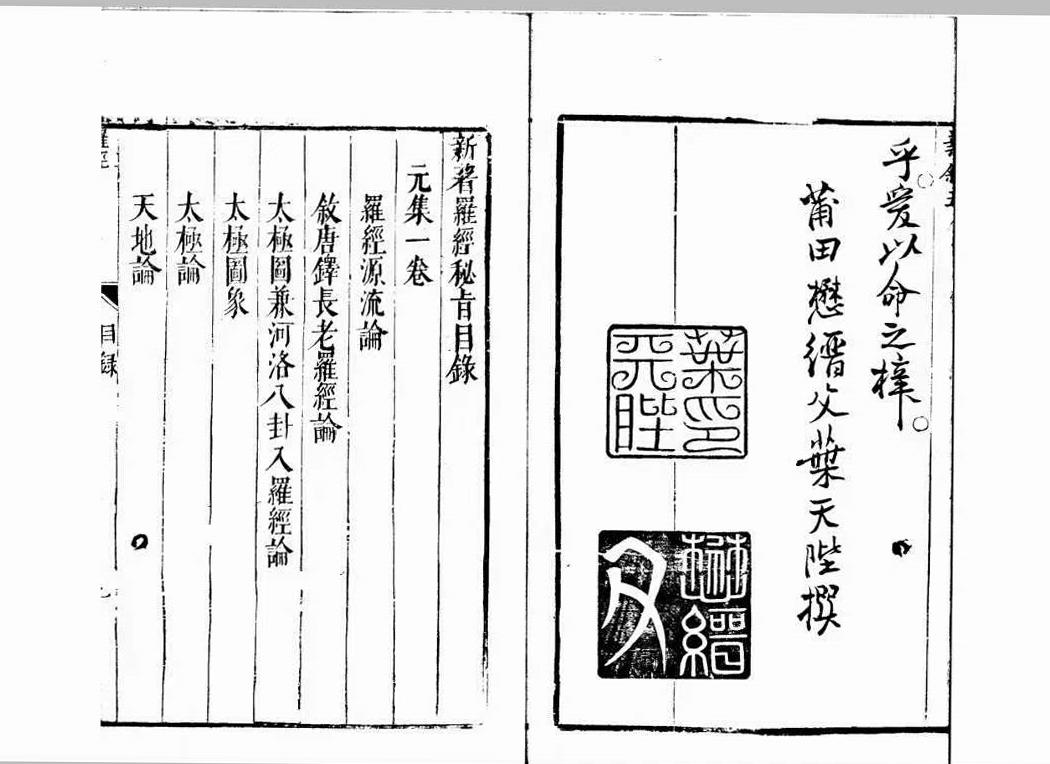 乎爰以命之梓
莆田懋縉父葉天陛撰
葉印
天陛
懋縉
父
新著羅經秘旨目錄
元集一卷
羅經源流論
敘唐鐸長老羅經論
太極圖兼河洛八卦入羅經論
太極圖象
太極論
天地論
羅經
目録